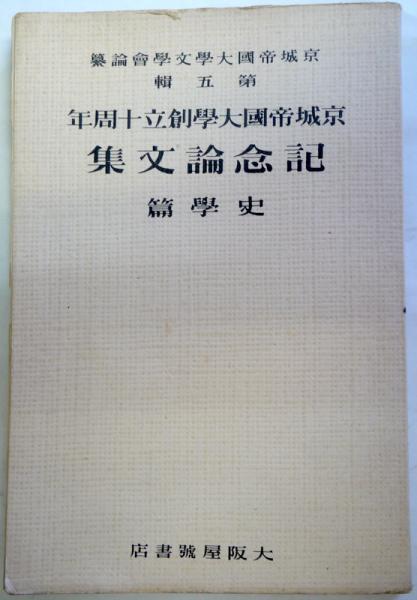 京城帝國大學文學會論纂
第五輯
京城帝國大學創立十周年
記念論文集
史學篇
大阪屋號書店